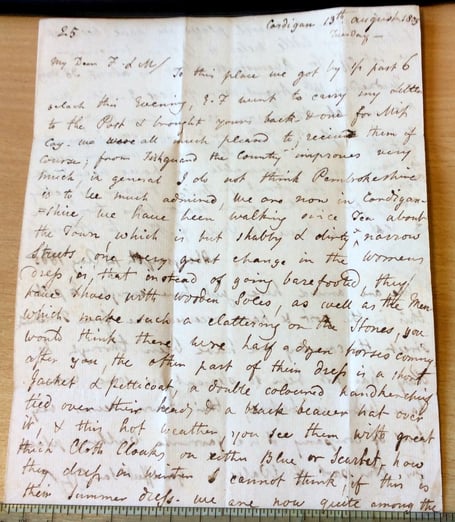 25
Cardigan 13th august 18
Tuesday —
My Dear F & M/
To this place we got by ½ past 6
oclock this Evening, E. F went to carry my letter
to the Post & brought yours back & one for Miss
Cay. we were all much pleased to receive them of
Course; from Fishguard the Country improves very
much, in general I do not think Pembrokeshire
is to be much admired, we are now in Cardigan
=shire we have been walking since Tea about
the Town which is but shabby & dirty ^ narrow
Streets, one very great change in the womens
dress, is that instead of going barefooted, they
have Shoes with wooden Soles, as well as the Men
which make such a clattering on the Stones, you
would think there were half a dozen horses coming
after you, the other part of their dress is a short
Jacket & petticoat a double coloured handkerchief
tied over their heads & a black beaver hat over
it, & this hot weather you see them with great
thick Cloth Cloaks on either Blue or Scarlet, how
they dress in winter I cannot think, if this is
their Summer dress. we are now quite among the